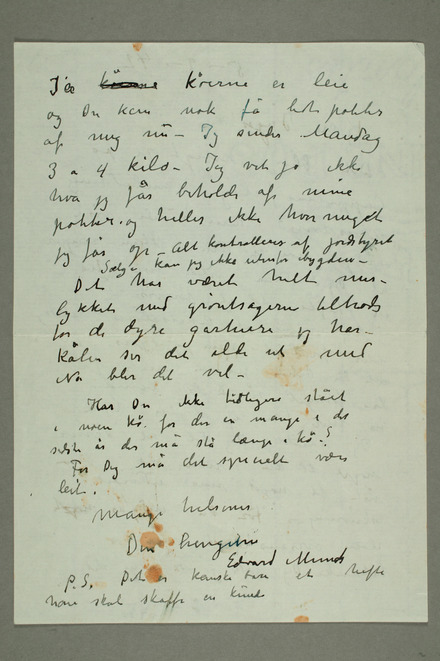 Ja køerne er leie
og Du kan nok få lidt poteter
af mig nu – Jeg sender Mandag
3 a 4 kilo – Jeg vet jo ikke
hva jeg får beholde af mine
poteter og heller ikke hvor meget
jeg får op – Alt kontrolleres af jordstyret
Sælge kan jeg ikke utenfor bygden –
Det har været helt mis-
lykket med grøntsagerne tiltrods
for de dyre gartnere jeg har –
Kålen ser det ilde ut med
Nå blir det vel –
Har Du ikke tidligere stået
i noen kø. for der er mange i det
sidste år der må stå længe i kø?
For Dig må det specielt være
leit.
Mange hilsener
Din hengivne
Edvard Munch
P.S. Det er kanske bare et hefte
noen skal skaffe en kunde